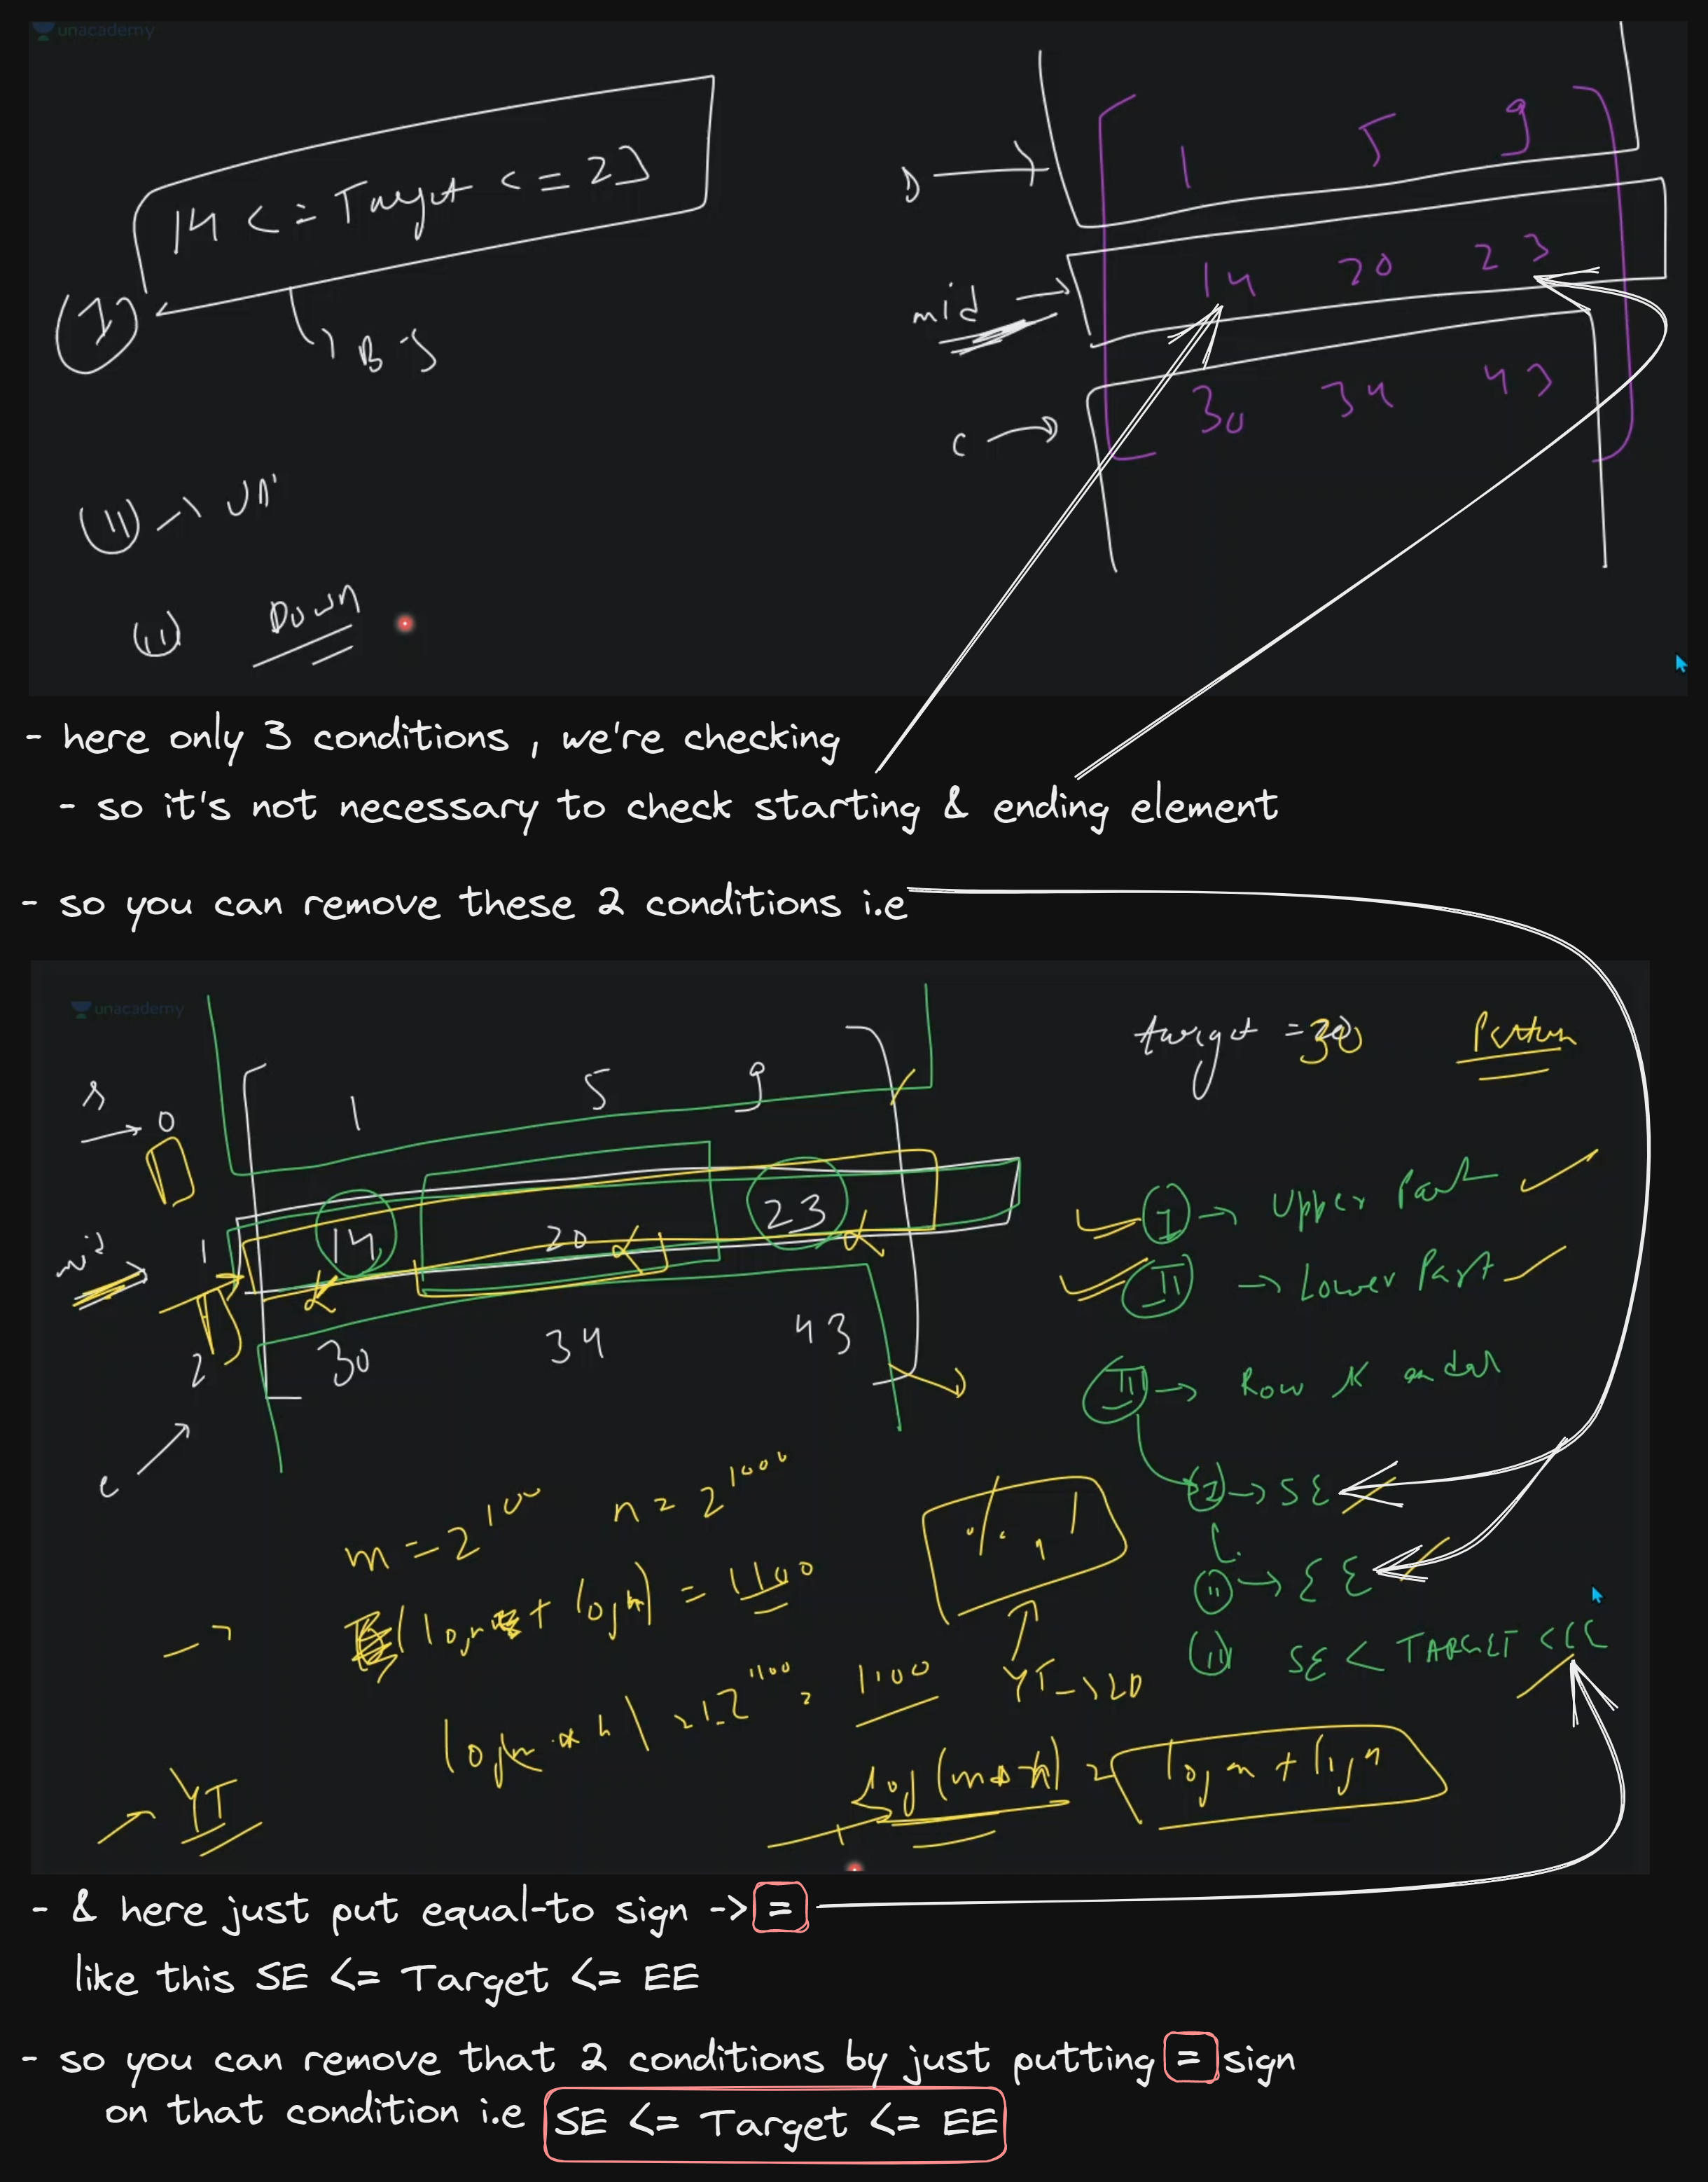 unacademy
14 <= Target <= 23
(I)
B.S
(II) → UP
(III) Down
D →
1 5 9
mid →
14 20 23
C →
30 34 43
- here only 3 conditions , we're checking
- so it's not necessary to check starting & ending element
- so you can remove these 2 conditions i.e
unacademy
target = 30
s → 0
1 5 9
mid → 1
14 20 23
2
30 34 43
e
I → Upper Part
II → Lower Part
III → Row K andar
(I) → SE
(II) → EE
(III) SE < TARGET <
m = 2^100 n = 2^1000
= 1100
1100
YT
log(m*n) = log m + log n
YT
- & here just put equal-to sign -> =
like this SE <= Target <= EE
- so you can remove that 2 conditions by just putting = sign
on that condition i.e SE <= Target <= EE